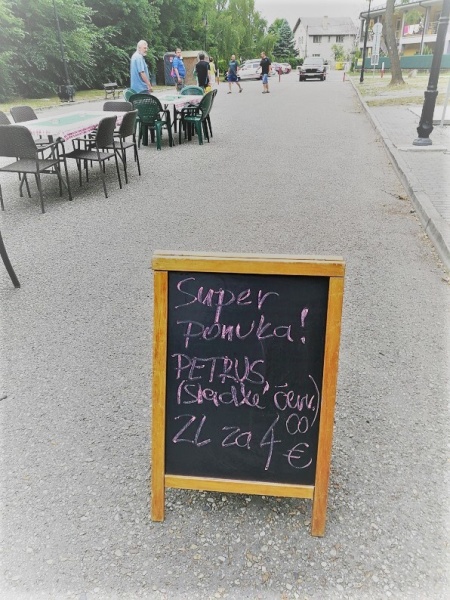 Super
ponuka!
PETRUS
(sladké červ.)
2L za 4 00 €